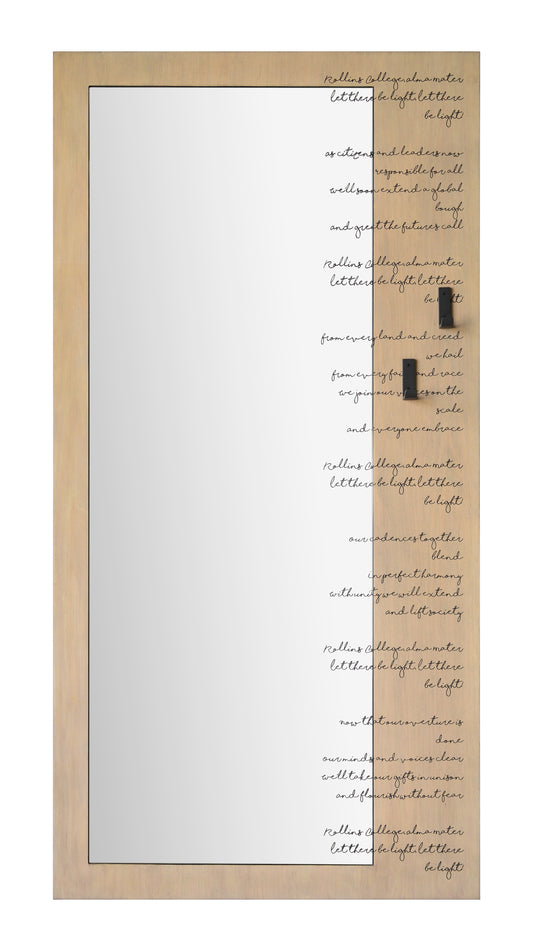 Rollins College, alma mater
let there be light, let there
be light!
as citizens and leaders now
responsible for all
we'll soon extend a global
bough
and greet the future's call
Rollins College, alma mater
let there be light, let there
be light!
from every land and creed
we hail
from every faith and race
we join our voices on the
scale
and everyone embrace
Rollins College, alma mater
let there be light, let there
be light!
our cadences together
blend
in perfect harmony
with unity we will extend
and lift society
Rollins College, alma mater
let there be light, let there
be light!
now that our overture is
done
our minds and voices clear
we'll take our gifts in unison
and flourish without fear
Rollins College, alma mater
let there be light, let there
be light!